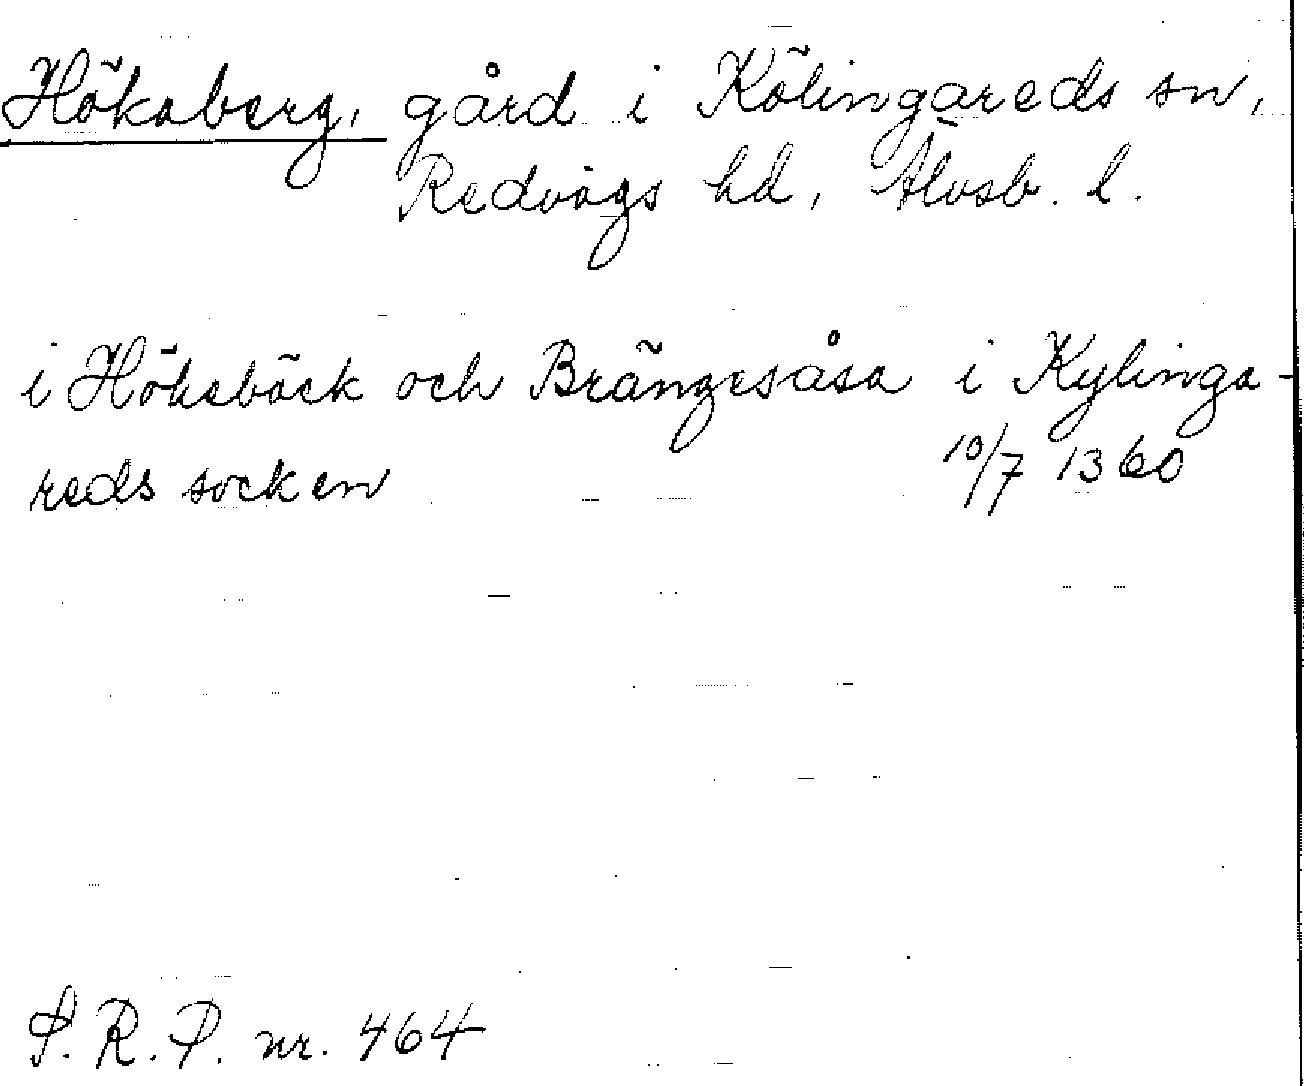 Hökaberg, gård i Kölingareds sn,
Redvägs hd, Älvsb. l.
i Höksbäck och Brängesåsa i Kylinga-
reds socken 10/7 1360
S. R. P. nr. 464